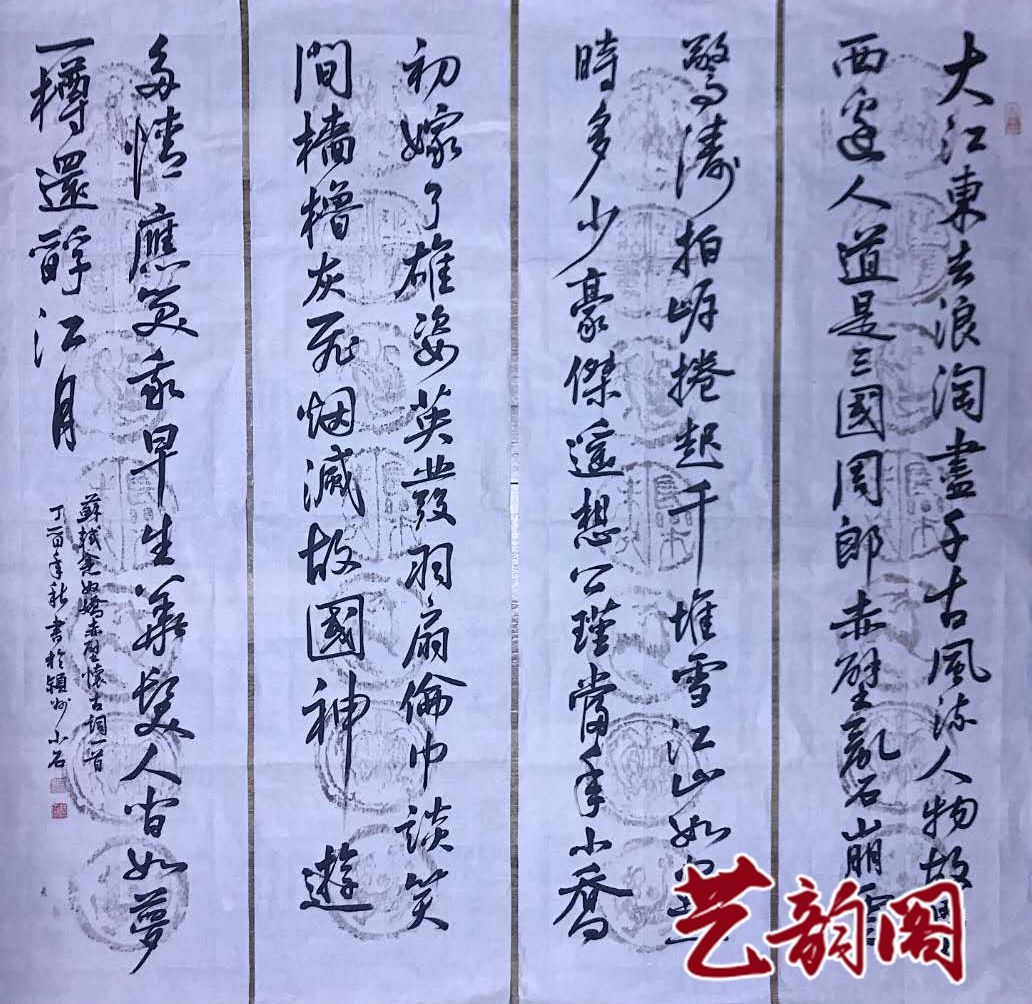 大江東去浪淘盡千古風流人物故
西邊人道是三國周郎赤壁亂石崩雲
驚濤拍岸捲起千堆雪江山如
時多少豪傑遥想公瑾當年小喬
初嫁了雄姿英發羽扇倫巾談笑
間檣櫓灰飛烟滅故國神遊
多情應笑我早生華髮人間如夢
一樽還酹江月
蘇軾念奴嬌赤壁懷古詞一首
丁酉年秋書於潁州小石
艺韵阁